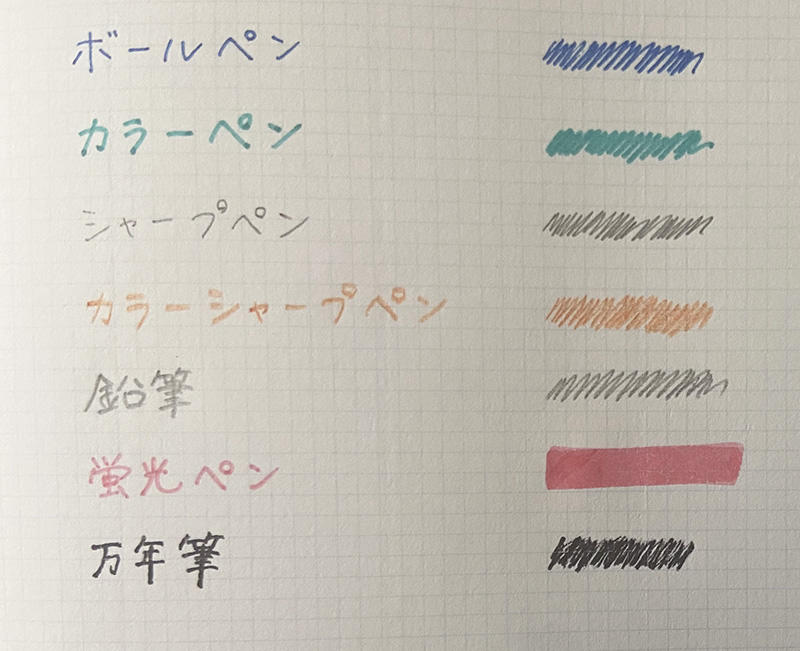 ボールペン
カラーペン
シャープペン
カラーシャープペン
鉛筆
蛍光ペン
万年筆